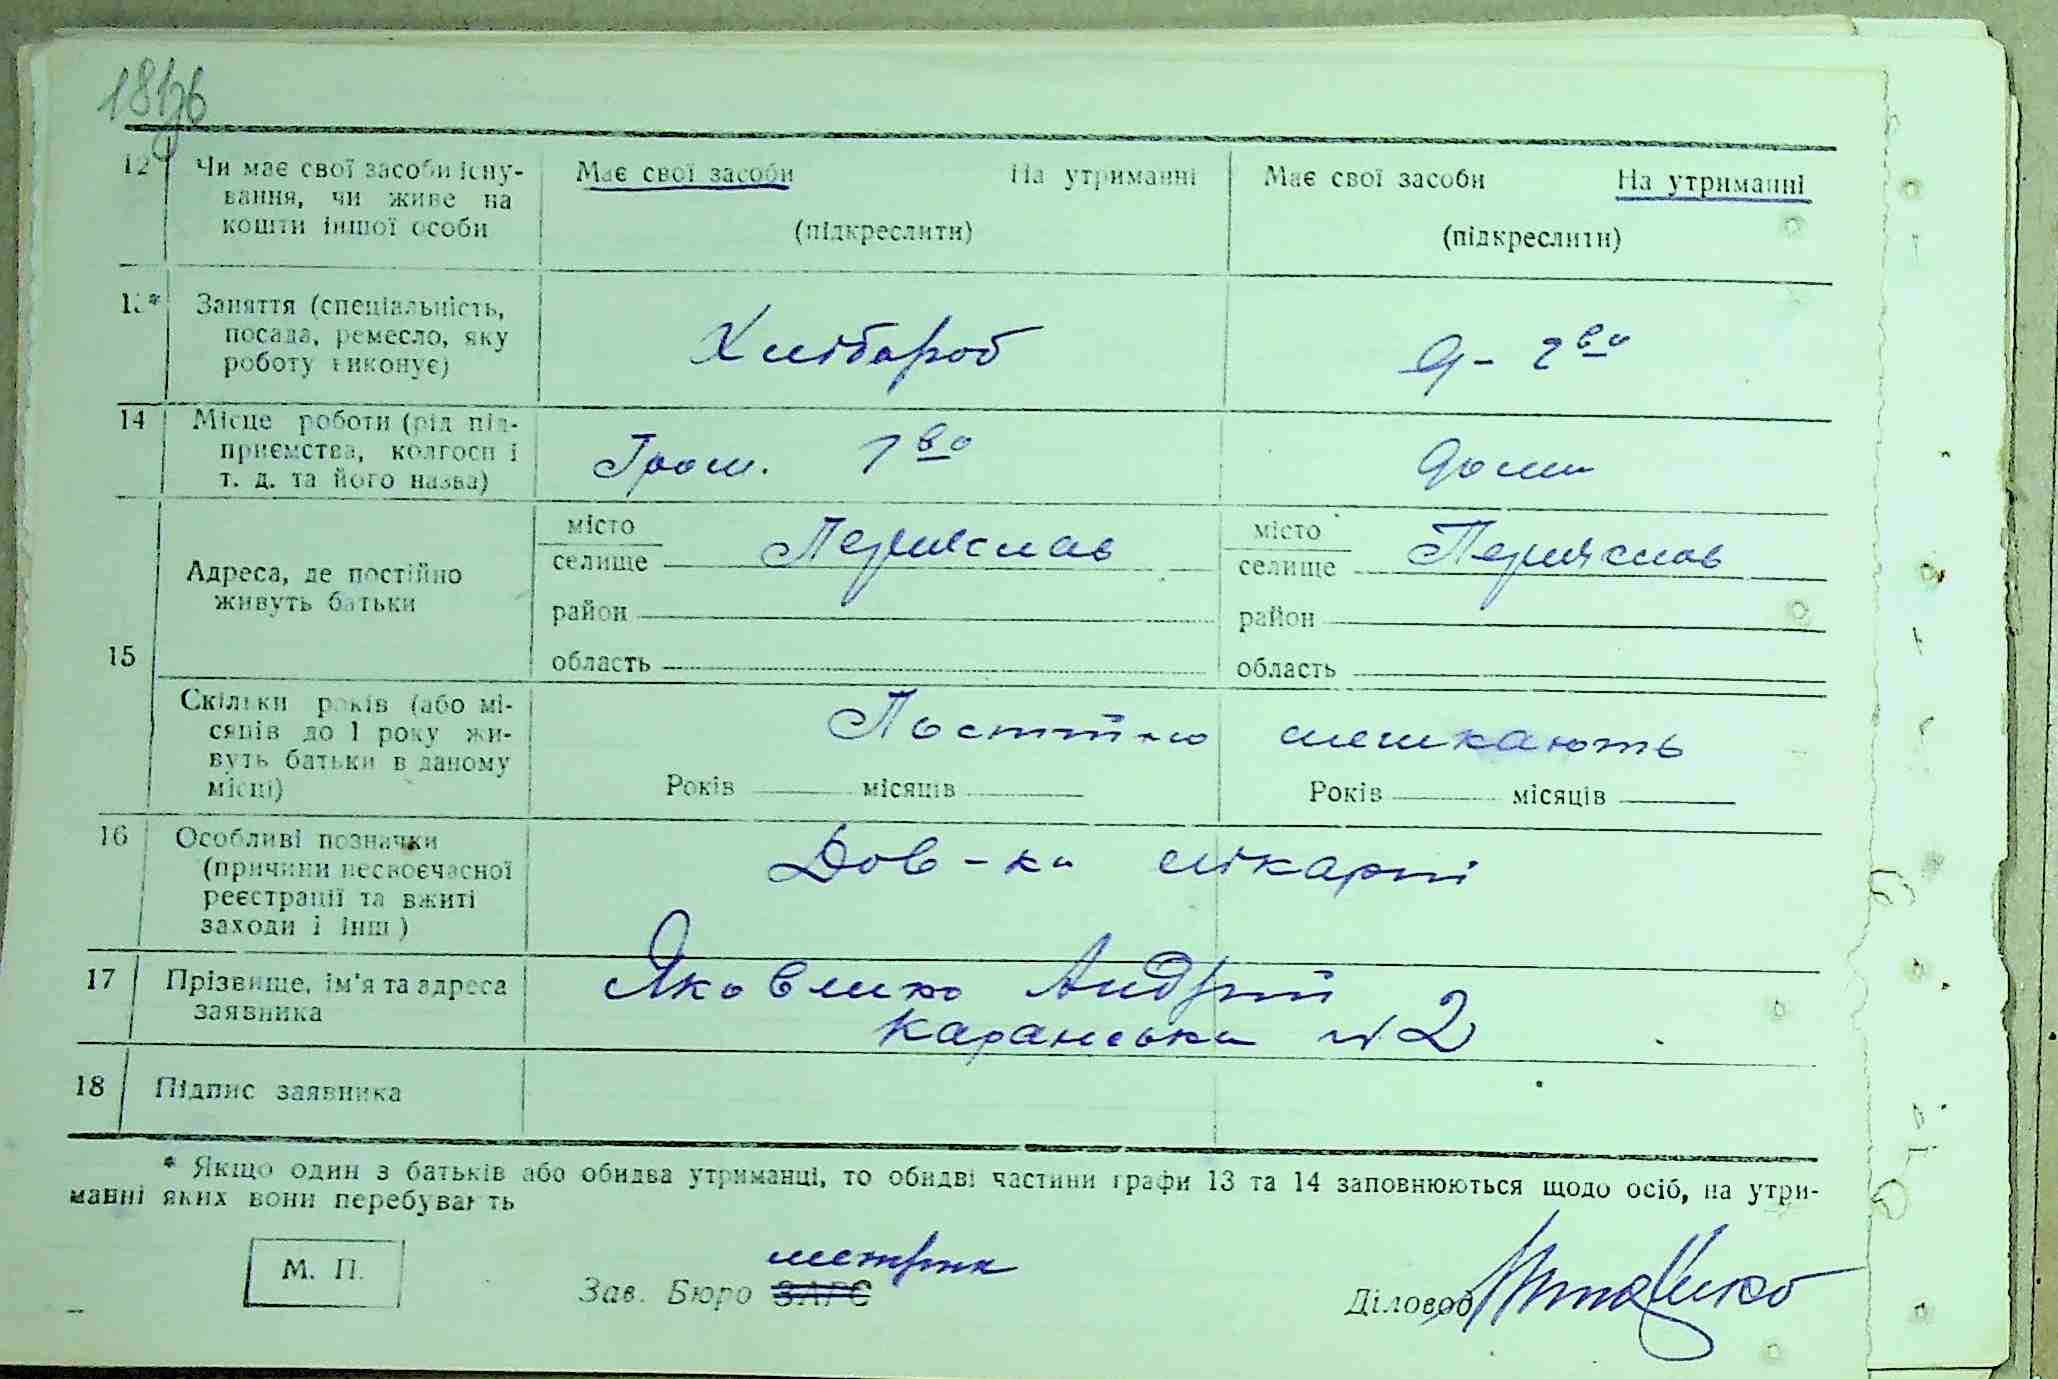 12 Чи має свої засоби існу- Має свої засоби На утриманні Має свої засоби На утриманні
вання, чи живе на
кошти іншої особи (підкреслити) (підкреслити)
13* Заняття (спеціальність,
посада, ремесло, яку Хлібороб Д- г во
роботу виконує)
14 Місце роботи (рід під-
приємства, колгосп і Гром. г во Дома
т. д. та його назва)
місто Переяслав місто Переяслав
селище селище
Адреса, де постійно
живуть батьки
район район
15
область область
Скільки років (або мі-
сяців до 1 року жи- Постійно мешкають
вуть батьки в даному
місці) Років місяців Років місяців
16 Особливі позначки
(причини несвоєчасної Дов-ка лікарні
реєстрації та вжиті
заходи і інш)
17 Прізвище, ім'я та адреса Яковенко Андрій
заявника Каранська № 2
18 Підпис заявника
* Якщо один з батьків або обидва утриманці, то обидві частини графи 13 та 14 заповнюються щодо осіб, на утри-
манні яких вони перебувають
метрик
М. П. Зав. Бюро ЗАГС Діловод